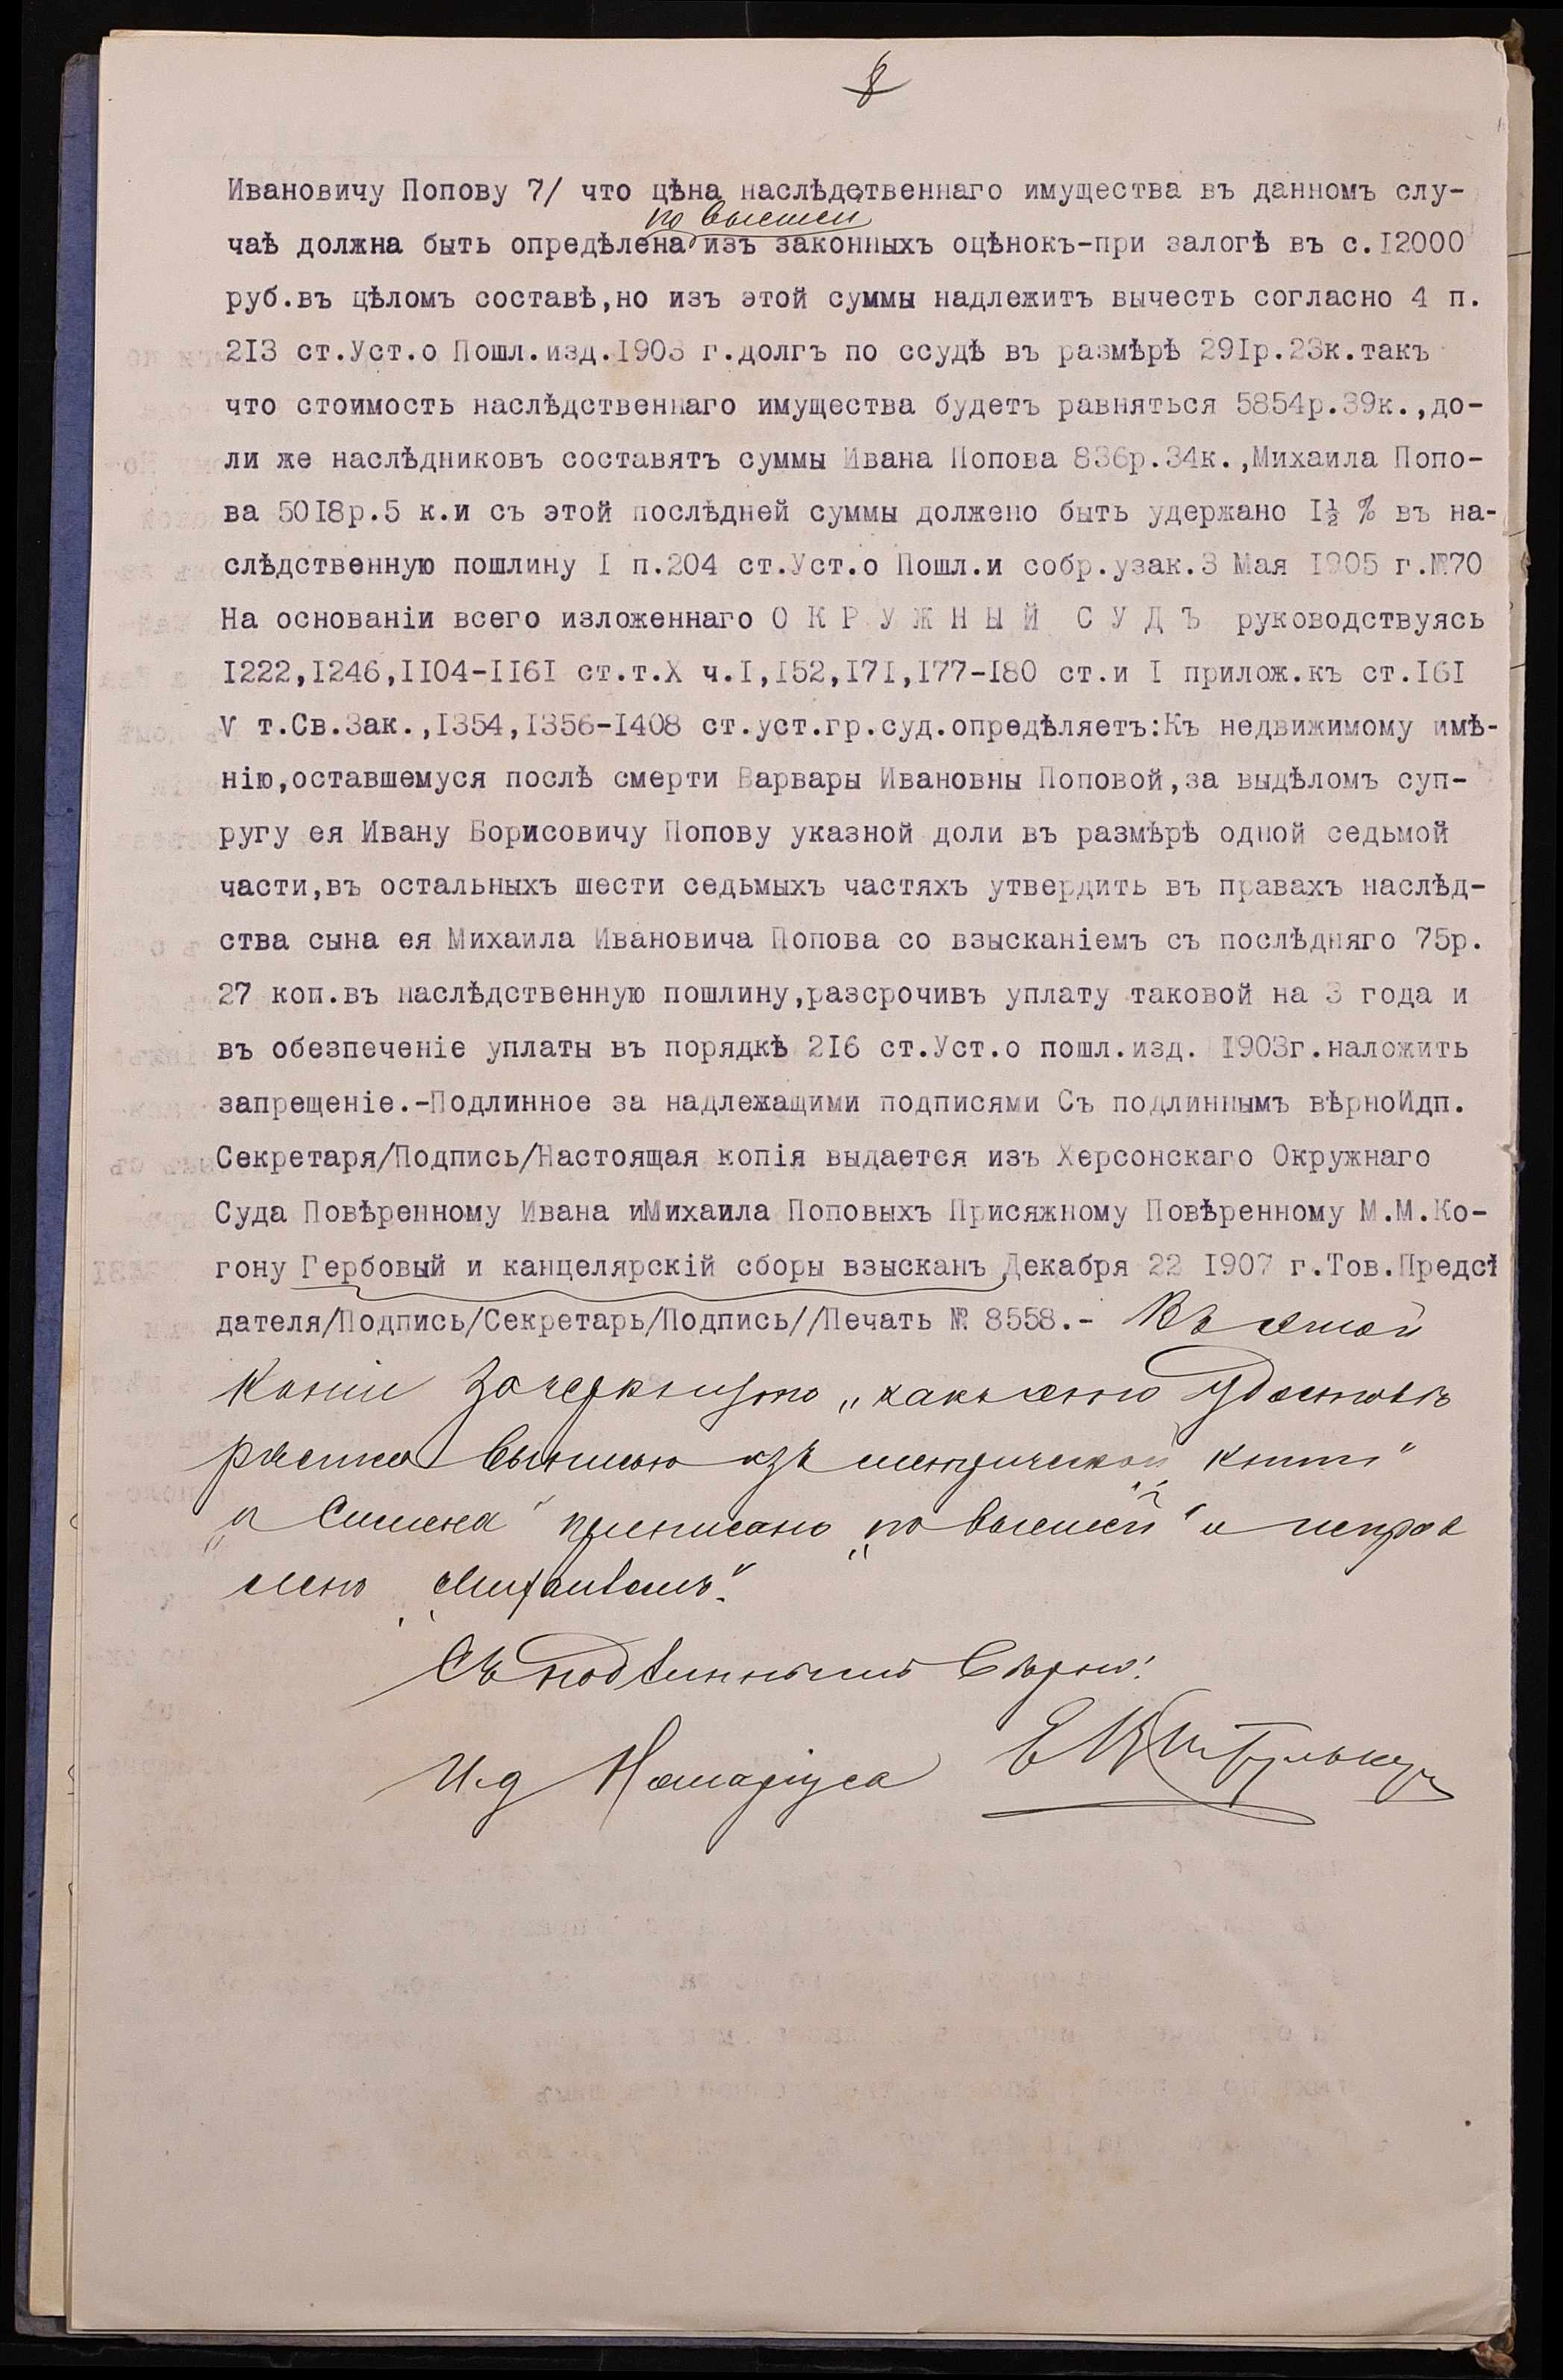 8
Ивановичу Попову 7/ что цѣна наслѣдственнаго имущества въ данномъ слу-
по высшей
чаѣ должна быть опредѣлена изъ законныхъ оцѣнокъ-при залогѣ въ с.I2000
руб.въ цѣломъ составѣ,но изъ этой суммы надлежитъ вычесть согласно 4 п.
2I3 ст.Уст.о Пошл.изд.I903 г.долгъ по ссудѣ въ размѣрѣ 29Iр.23к.такъ
что стоимость наслѣдственнаго имущества будетъ равняться 5854р.39к.,до-
ли же наслѣдниковъ составятъ суммы Ивана Попова 836р.34к.,Михаила Попо-
ва 50I8р.5 к.и съ этой послѣдней суммы должено быть удержано I½ % въ на-
слѣдственную пошлину I п.204 ст.Уст.о Пошл.и собр.узак.3 Мая I905 г.№70
На основаніи всего изложеннаго О К Р У Ж Н Ы Й С У Д Ъ руководствуясь
I222,I246,II04-II6I ст.т.X ч.I,I52,I7I,I77-I80 ст.и I прилож.къ ст.I6I
V т.Св.Зак.,I354,I356-I408 ст.уст.гр.суд.опредѣляетъ:Къ недвижимому имѣ-
нію,оставшемуся послѣ смерти Варвары Ивановны Поповой,за выдѣломъ суп-
ругу ея Ивану Борисовичу Попову указной доли въ размѣрѣ одной седьмой
части,въ остальныхъ шести седьмыхъ частяхъ утвердить въ правахъ наслѣд-
ства сына ея Михаила Ивановича Попова со взысканіемъ съ послѣдняго 75р.
27 коп.въ наслѣдственную пошлину,разсрочивъ уплату таковой на 3 года и
въ обезпеченіе уплаты въ порядкѣ 2I6 ст.Уст.о пошл.изд. I903г.наложить
запрещеніе.-Подлинное за надлежащими подписями Съ подлиннымъ вѣрноИдп.
Секретаря/Подпись/Настоящая копія выдается изъ Херсонскаго Окружнаго
Суда Повѣренному Ивана иМихаила Поповыхъ Присяжному Повѣренному М.М.Ко-
гону Гербовый и канцелярскій сборы взысканъ Декабря 22 I907 г.Тов.Предсѣ
дателя/Подпись/Секретарь/Подпись//Печать № 8558.- Въ этой
копіи зачеркнуто „какъ это удостовѣ
ряетъ выписью изъ метрической книги"
„и Симена" приписано „по высшей" и исправ
лено „Михаиломъ".
Съ подлиннымъ вѣрно:
И.д Нотаріуса